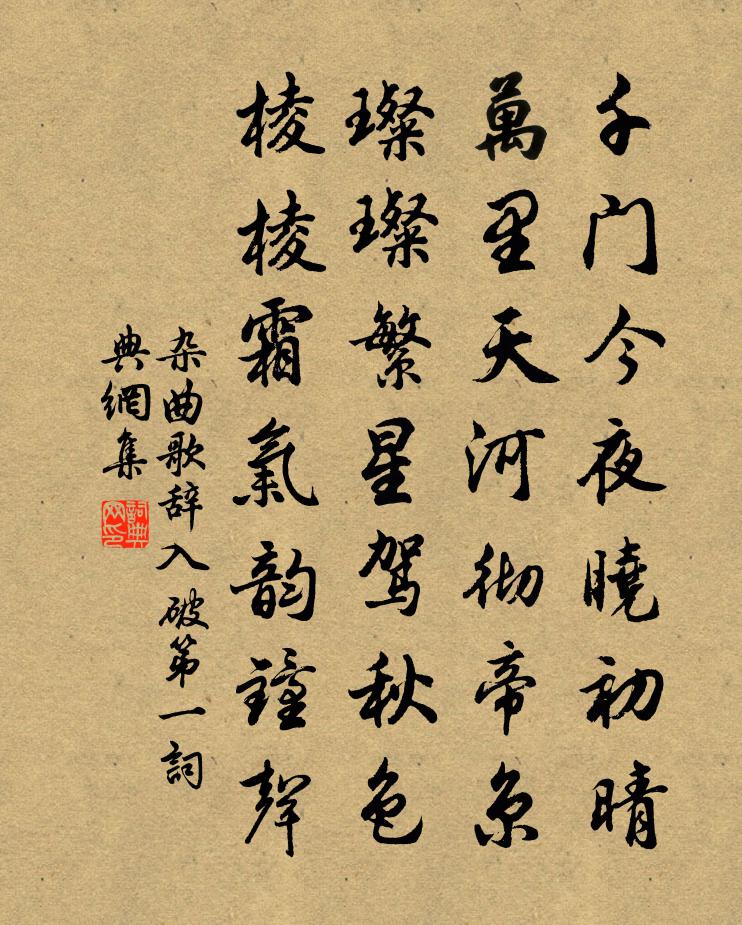 千門今夜曉初晴
萬里天河徹帝京
璨璨繁星駕秋色
棱棱霜氣韵鐘聲
杂曲歌辞入破第一詞
典網集
詞典网印